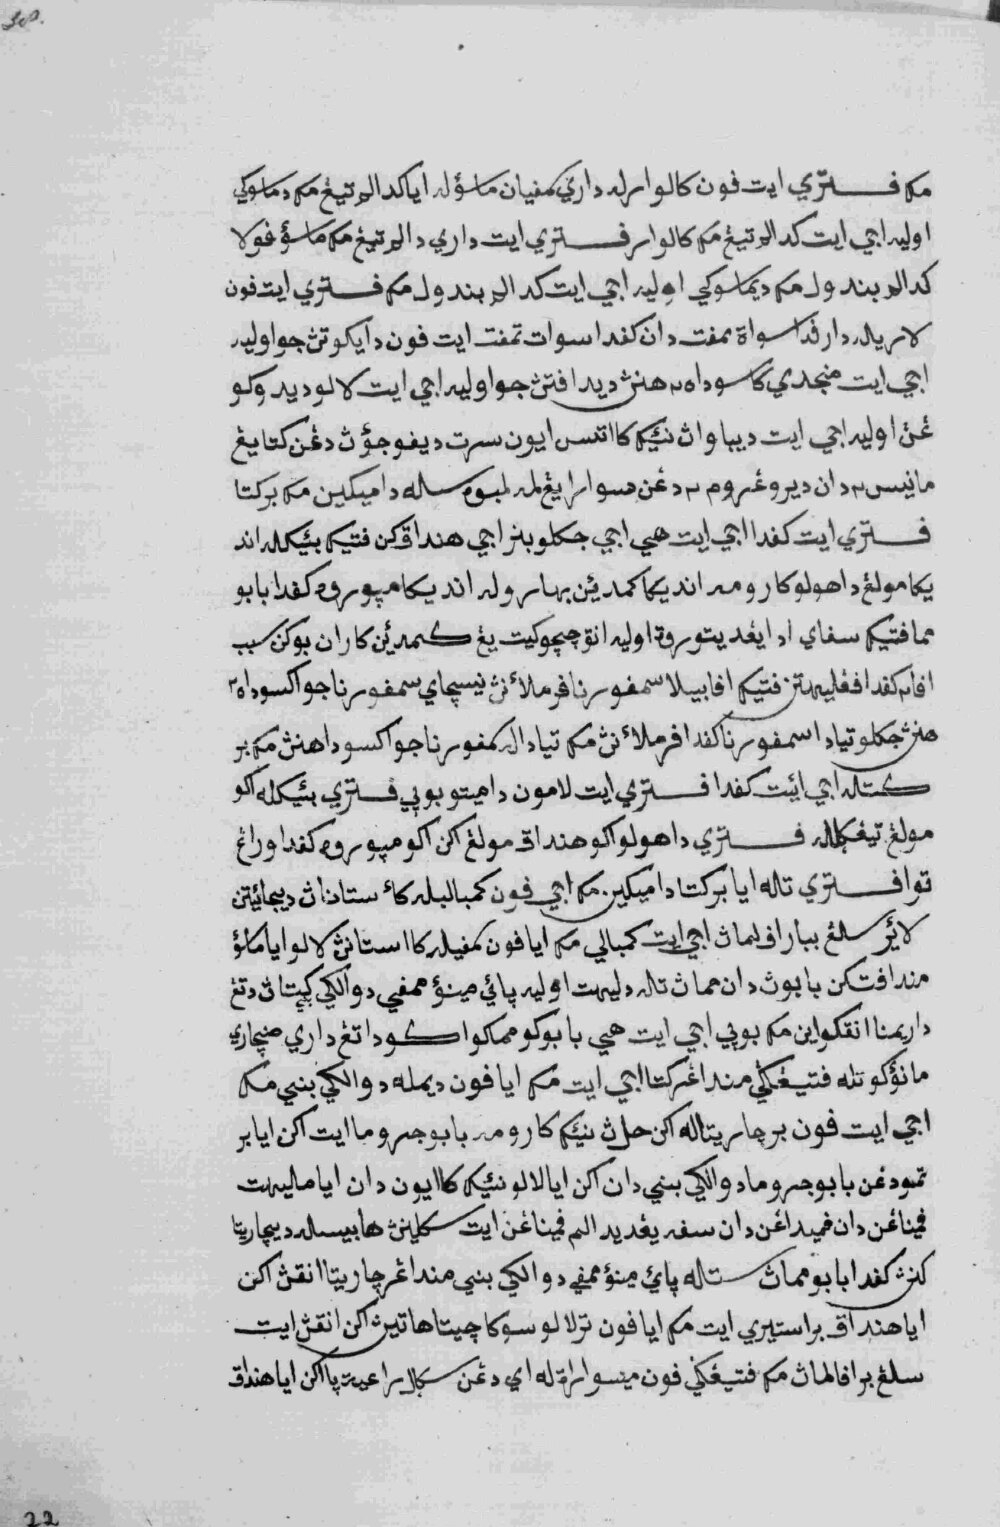 مک فتري ايت فون کالوارله داري کمفيان ماسؤله اي کدالم تيڠ مک دماسوکي
اوليه اجي ايت کدالم تيڠ مک کالوار فتري ايت داري دالم تيڠ مک ماسؤ فولا
کدالم بندول مک ديماسوکي اوليه اجي ايت کدالم بندول مک فتري ايت فون
لاري له دارفد اسواة تمفت دان کفد اسوات تمفت ايت فون دايکوتڽ جوا اوليه
اجي ايت منجدي کاسوداه٢هنڽ ديدافتڽ جوا اوليه اجي ايت لالو ديدوکو
غڽ اوليه اجي ايت ديباواڽ نئيک کااتس ايون سرت ديفوجؤڽ دڠن کتا يڠ
مانيس٢ دان ديروڠروم٢ دڠن سوارا يڠ لمه لمبوة سله داميکين مک برکتا
فتري ايت کفد اجي ايت هي اجي جکلو بنر اجي هندق کن فتيک بئيکله اند
يکا مولڠ داهولو کارومه انديکا کمدين بهارو له انديکا مپوروه کفد ابابو
مما فتيک سفاي اد ايڠديتوروة اوليه انق چوچو کيت يڠ کمدين کارن بوکن سبب
افا٢ کفد افڠليهتن فتيک افابيلا سمفورنا فرملاءنڽ نسچاي سمفورنا جوا کسوداه٢
هنڽ جکلو تياد اسمفورنا کفد افرملاءنڽ مک تياداله سمفورنا جوا کسوداهنڽ مک بر
کتاله اجي ايت کفد افتري ايت لامون داميتو بوپي فتري بئيکله اکو
مولڠ تيڠکاله فتري داهولو اکو هندق مولڠ اکن اکو مپوروه کفد اورڠ
توا فتري تاله ايا برکتا داميکين مک اجي فون کمباليله کاءستاناڽ ديجائيتن
لائر سلڠ ببارافلماڽ اجي ايت کمبالي مک ايا فون کمفيله کااستانڽ لالو ايا ماسؤ
مندافتکن بابوڽ دان مماڽ تاله دليهت اوليه پائي مينؤ ممفي دوالکي کپيتاڽ دتڠ
داريمنا انقکو اين مک بوپي اجي ايت هي بابوکو ممکو اکو داتڠ داري منچاري
مانؤکو تاله فتيڠکي منداڠر کتا اجي ايت مک ايا فون ديمله دوالکي بنيي مک
اجي ايت فون برچاريتاله اکن حلڽ نئيک کارومه بابو جروما ايت اکن ايا بر
تمو دڠن بابو جروما دوالکي بنيي دان اکن ايا لالو نئيک کاايون دان ايا مليهت
فمناڠن دان فميداڠن دان سفه يڠديدالم فمناڠن ايت سکلينڽ هابيسله ديچاريتا
کنڽ کفد ابابو مماڽ ستاله پائي مينؤ ممفي دوالکي بنيي منداڠر چاريتا انقڽ اکن
ايا هندق براستيري ايت مک ايا فون ترلالو سوکاچيتا هاتيڽ اکن انقڽ ايت
سلڠ برافالماڽ مک فتيڠکي فون مپوارا تله اي دڠن سکال رعيتپا اکن ايا هندق